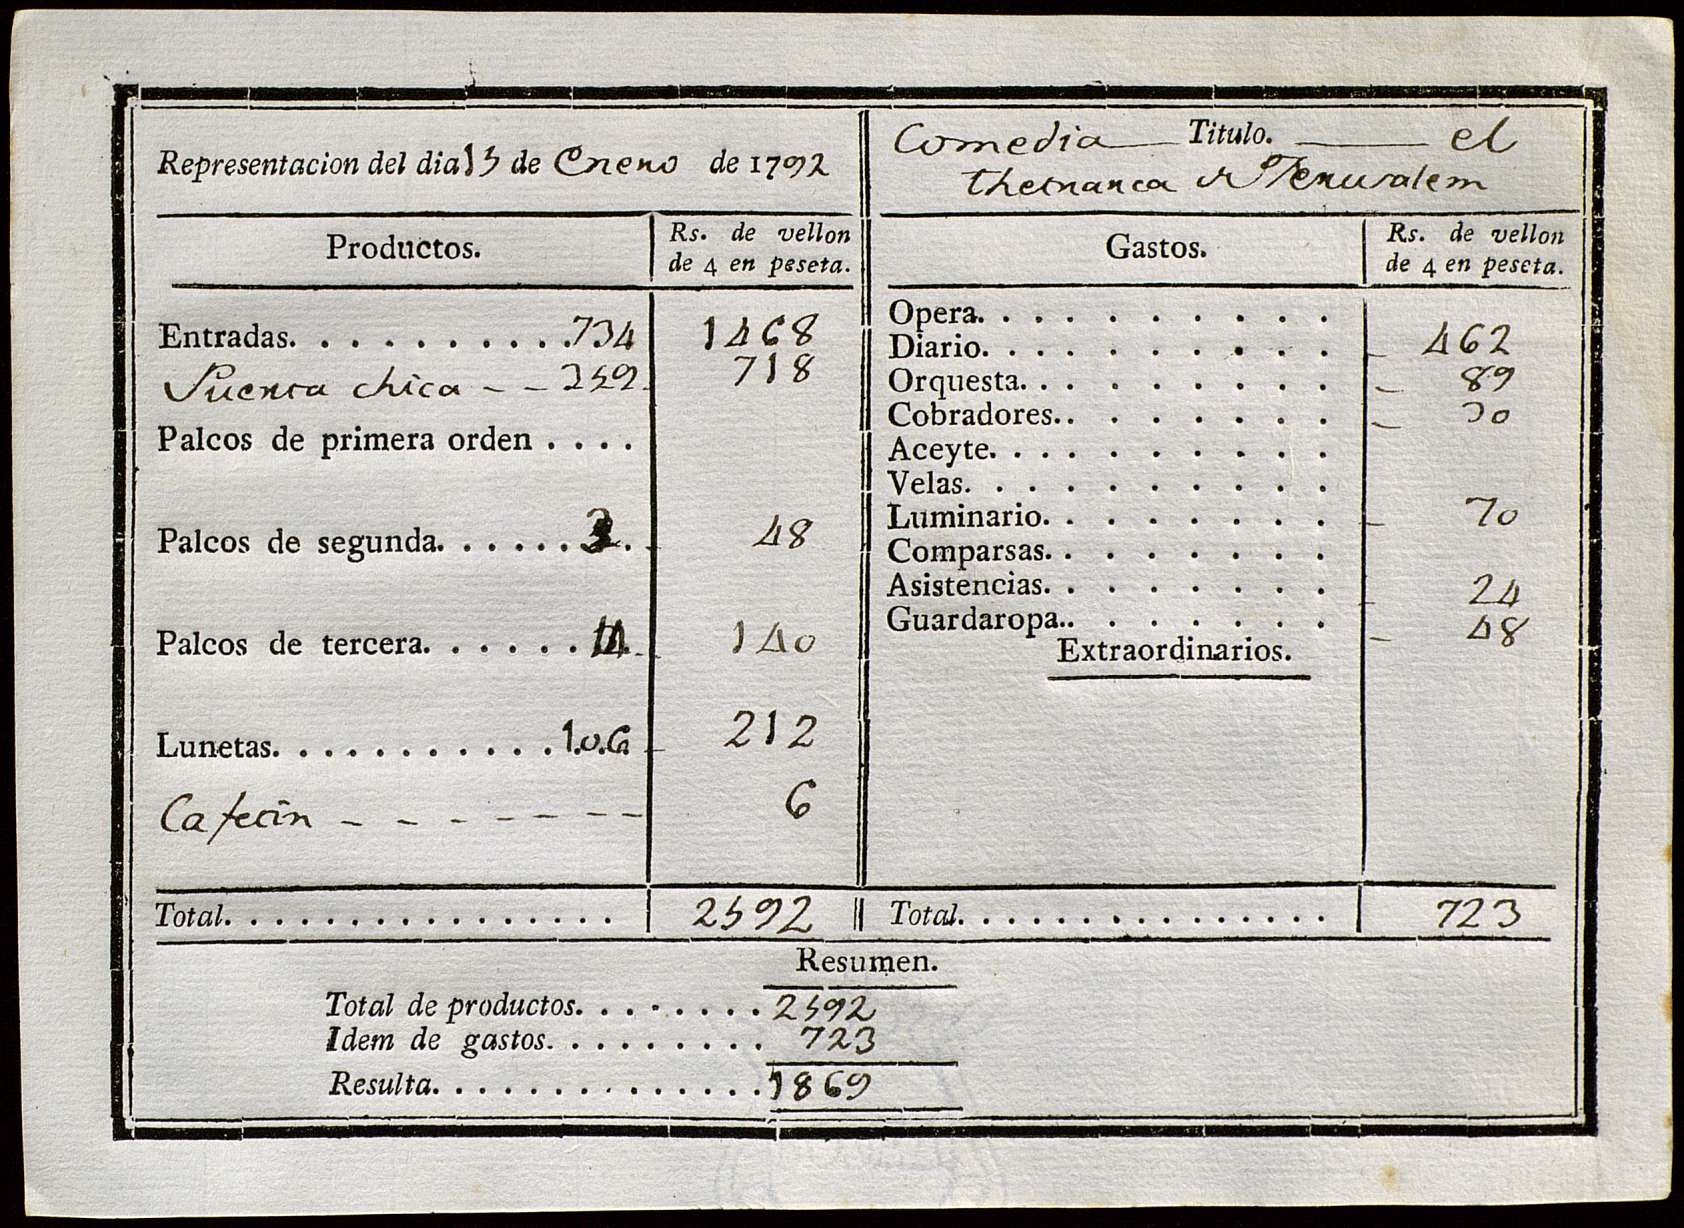 Representacion del dia 15 de Enero de 1792
Comedia Titulo. el
thetrarca de Jerusalem
Productos.
Rs. de vellon
de 4 en peseta.
Gastos.
Rs. de vellon
de 4 en peseta.
Entradas. 734 1468
Puerta chica - - 359 718
Palcos de primera orden
Palcos de segunda. 3 48
Palcos de tercera. 14 140
Lunetas. 106 212
Cafetin 6
Total. 2592
Opera.
Diario. 462
Orquesta. 89
Cobradores. 30
Aceyte.
Velas.
Luminario. 70
Comparsas.
Asistencias. 24
Guardaropa. 48
Extraordinarios.
Total. 723
Resumen.
Total de productos. 2592
Idem de gastos. 723
Resulta. 1869